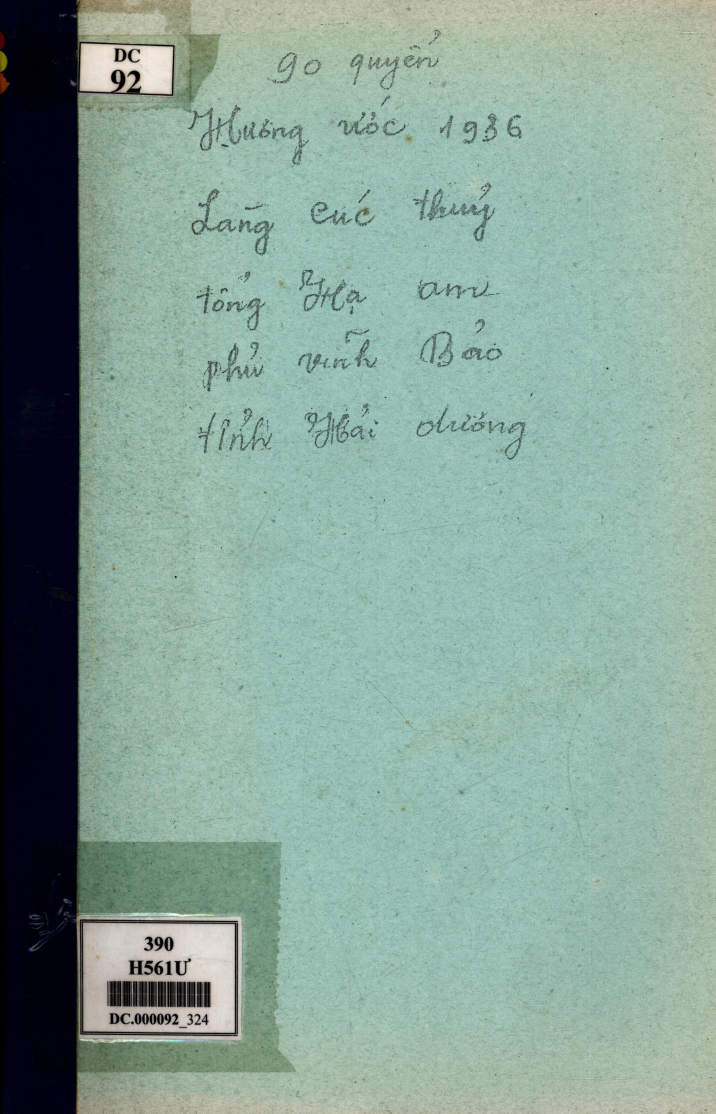 DC
92
90 quyển
Hương ước 1936
Làng Cúc thuỷ
tổng Hạ am
phủ vĩnh Bảo
tỉnh Hải dương
390
H561Ư
DC.000092_324